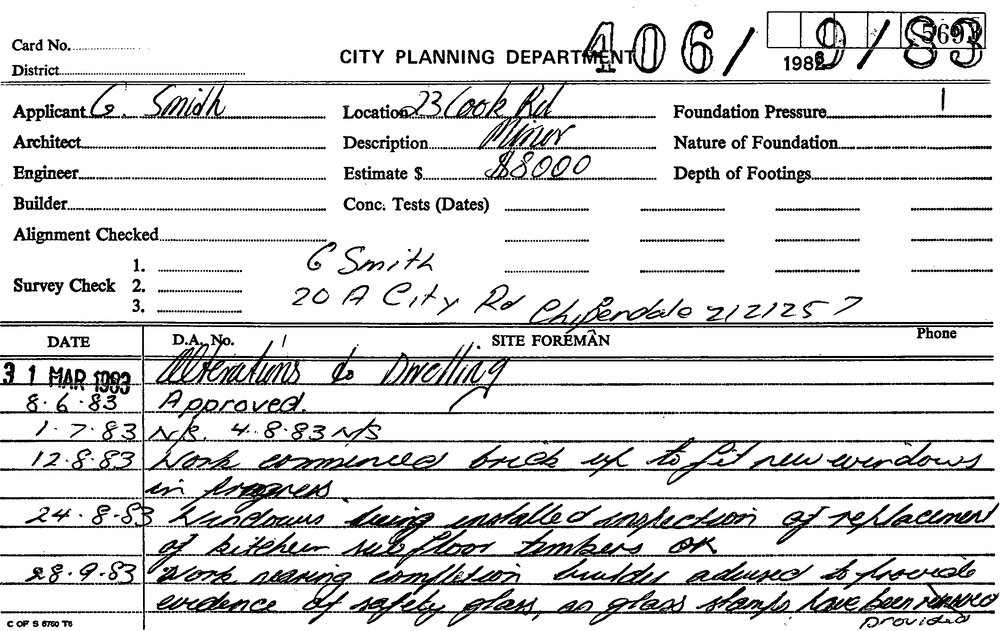 5693
406/9/83
Card No.
CITY PLANNING DEPARTMENT
198
District
Applicant G. Smith Location 23 Cook Rd Foundation Pressure
Architect Description Minor Nature of Foundation
Engineer Estimate $ $8000 Depth of Footings
Builder Conc. Tests (Dates)
Alignment Checked
Survey Check 1.
2.
3.
G Smith
20 A City Rd Chipendale 2121257
DATE D.A. No. SITE FOREMAN Phone
31 MAR 1983 Alterations to Dwelling
8.6.83 Approved.
1.7.83 N/S. 4.8.83 N/S
12.8.83 Work commenced brick up to fit new windows
in progress.
24.8.83 Windows being installed inspection of replacement
of kitchen sub floor timbers OK
28.9.83 Work nearing completion builder advised to provide
evidence of safety glass, as glass stamps have been removed
provided
C OF S 6760 T6